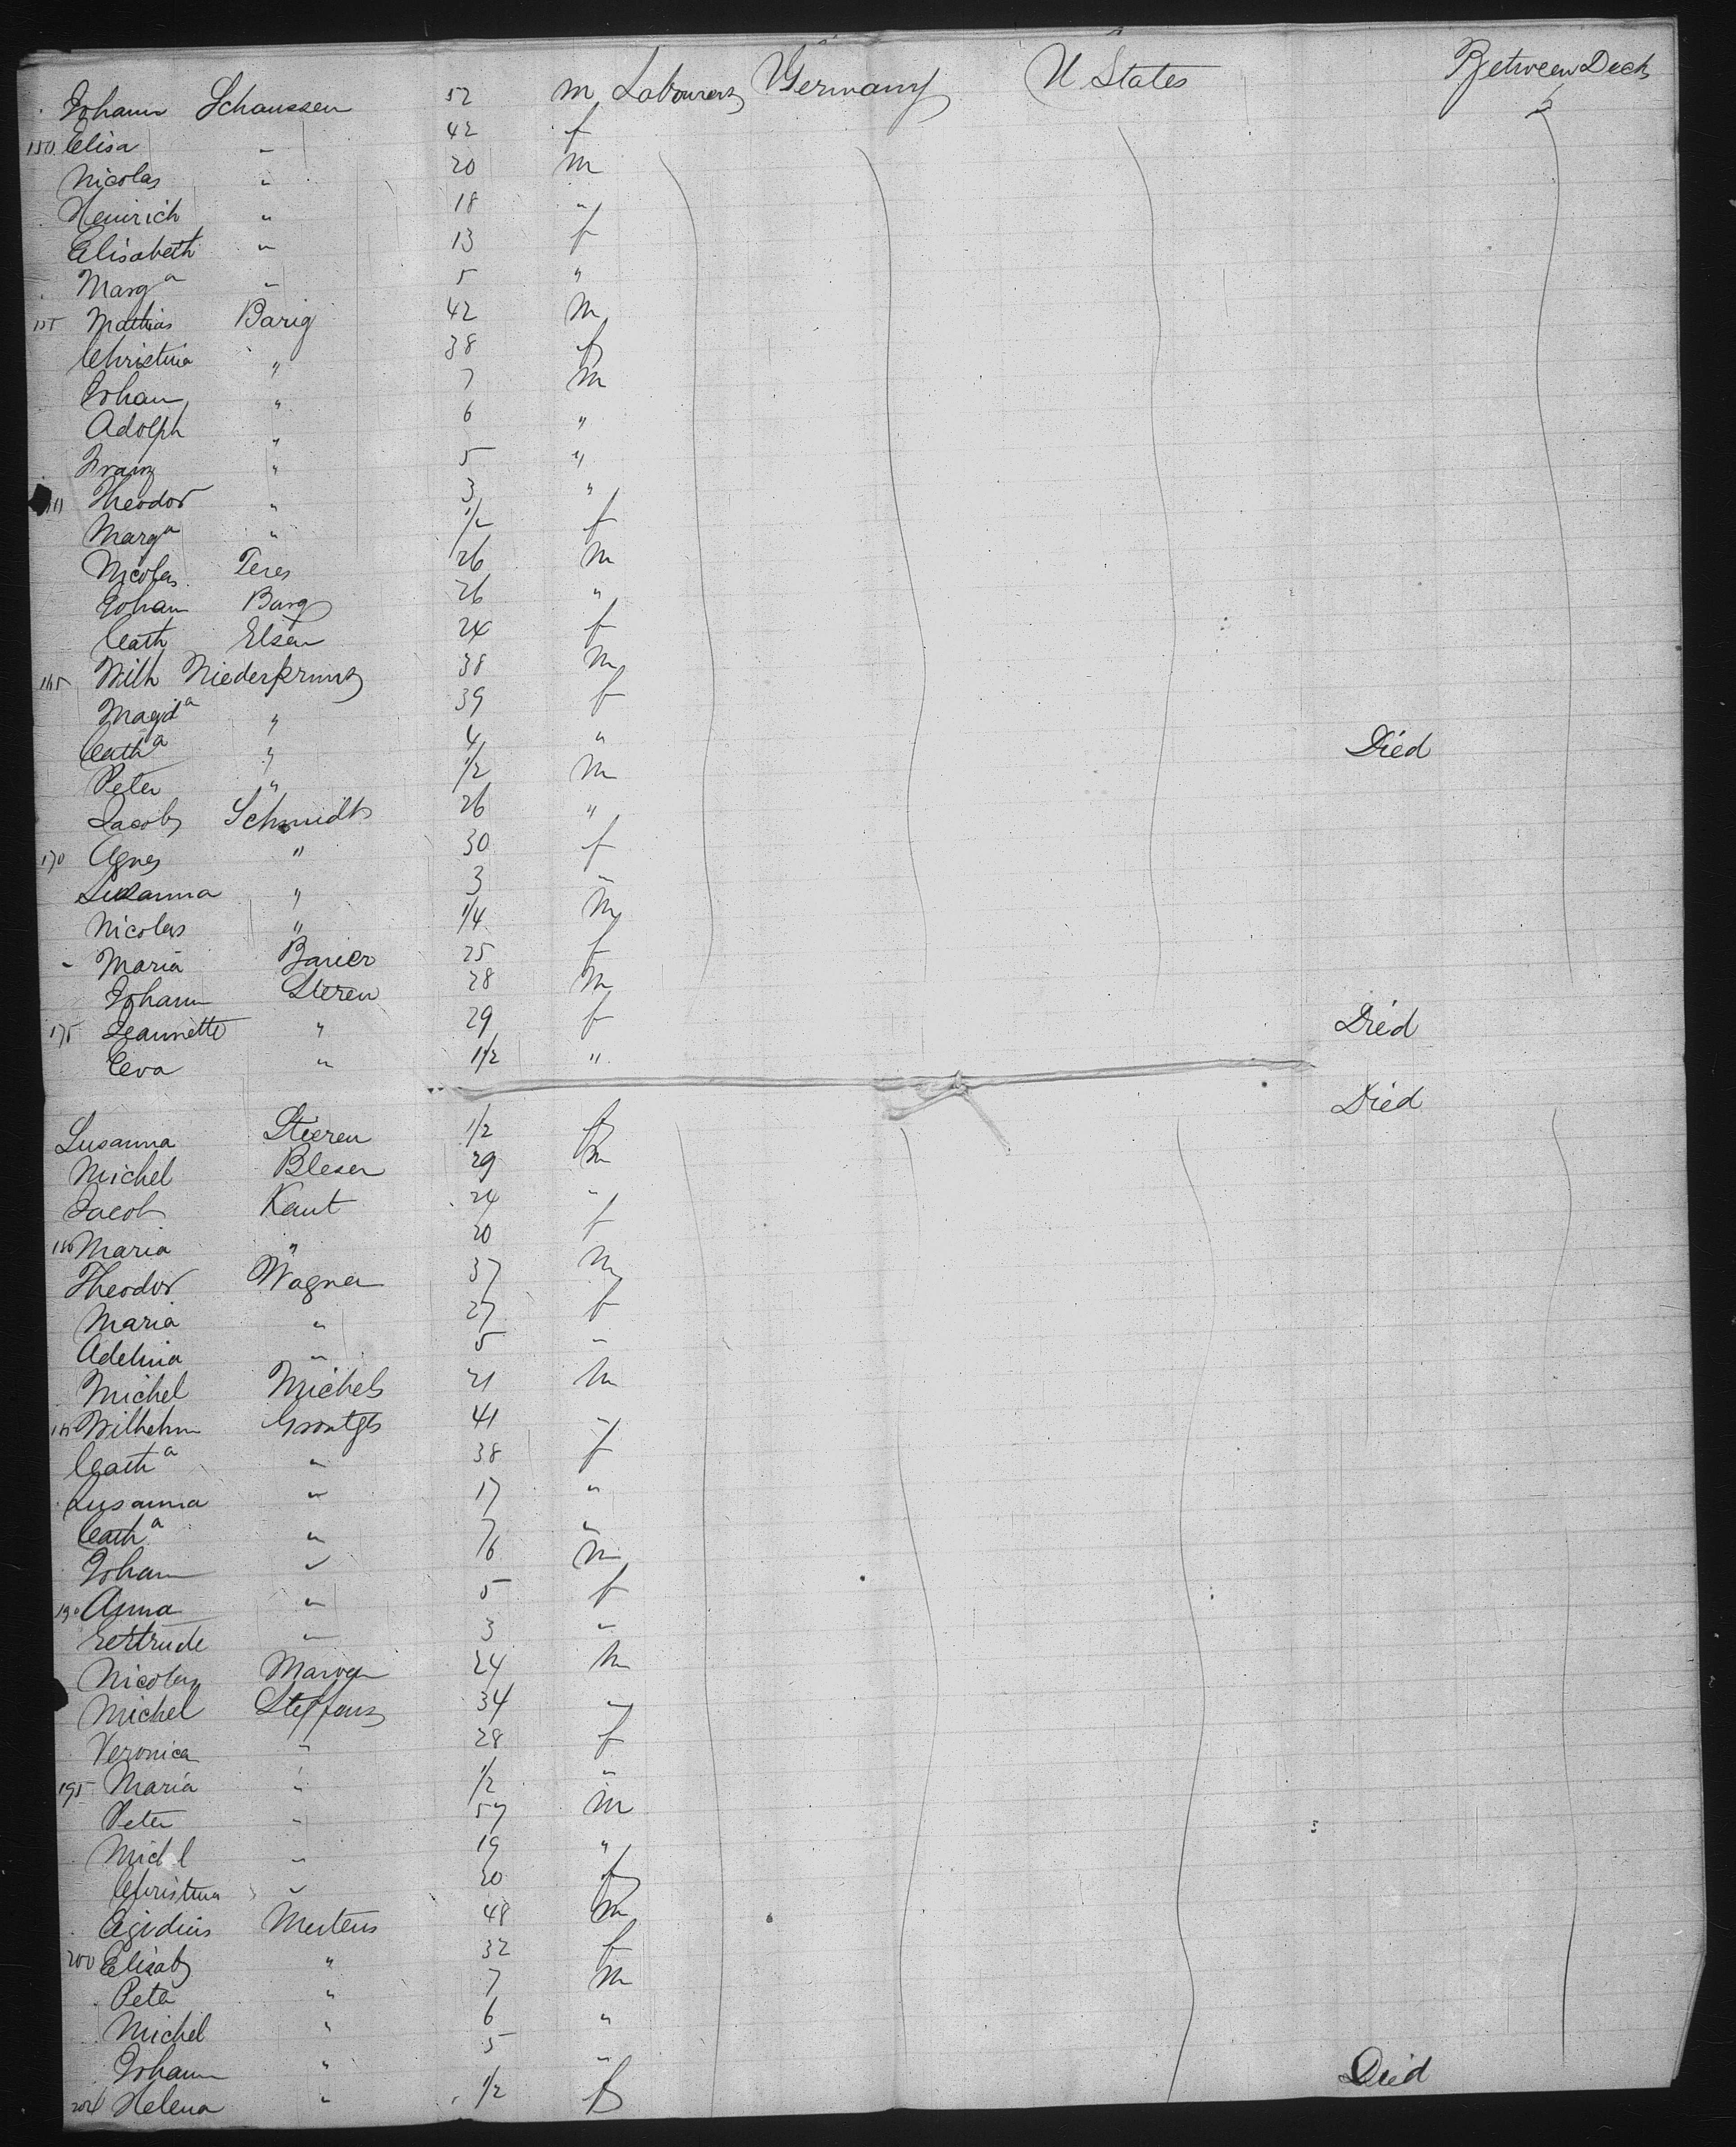 Johann Schaussen 52 m Labourers Germany U States Between Deck
150 Elisa " 42 f
Nicolas " 20 m
Heinrich " 18 "
Elisabeth " 13 f
Marga " 5 "
155 Mathias Barig 42 m
Christina " 38 f
Johann " 7 m
Adolph " 6 "
Franz " 5 "
Theodor " 3 "
Marga " 1/2 f
Nicolas Teres 26 m
Johann Barg 26 "
Cath Elsen 24 f
165 Wilh 38 m
Magda " 39 f
Catha " 4 " Died
Peter " 1/2 m
Jacob Schmidt 26 "
170 Agnes " 30 f
Susanna " 3 "
Nicolas " 1/4 m
Maria Barier 25 f
Johann Steren 28 m
175 Jeannette " 29 f Died
Eva " 1 1/2 "
Susanna Stieren 1/2 f Died
Michel Bleser 29 m
Jacob Kaut 24 "
180 Maria " 20 f
Theodor Wagner 37 m
Maria " 27 f
Adelina " 5 "
Michel Michels 21 m
185 Wilhelm 41 "
Catha " 38 f
Susanna " 17 "
Catha " 7 "
Johann " 6 m
190 Anna " 5 f
Gertrude " 3 "
Nicolas 24 m
Michel Steffens 34 "
Veronica " 28 f
195 Maria " 1/2 "
Peter " 57 m
Michel " 19 "
Christina " 20 f
Egidius Mertens 48 m
200 Elisab " 32 f
Peter " 7 m
Michel " 6 "
Johann " 5 "
204 Helena " 1/2 f Died